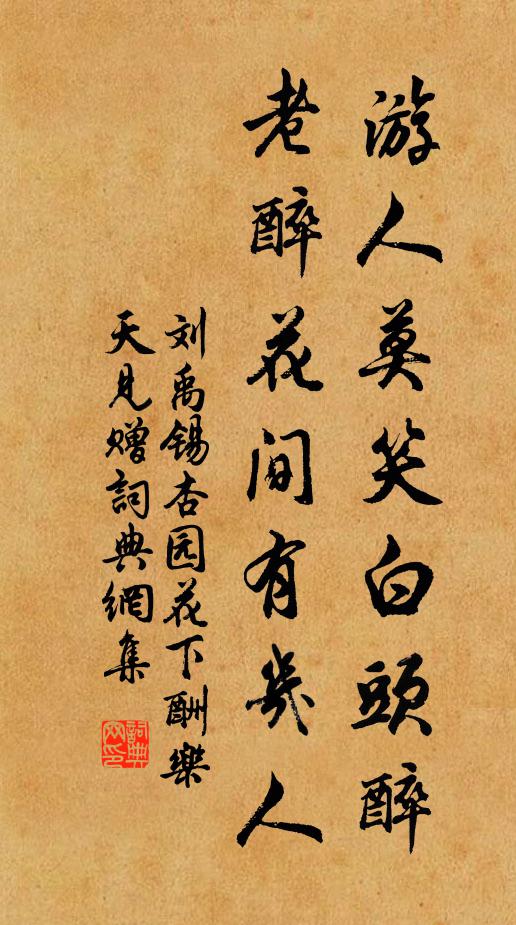 游人莫笑白頭醉
老醉花间有幾人
刘禹锡杏园花下酬樂
天見贈詞典網集
詞典
网印